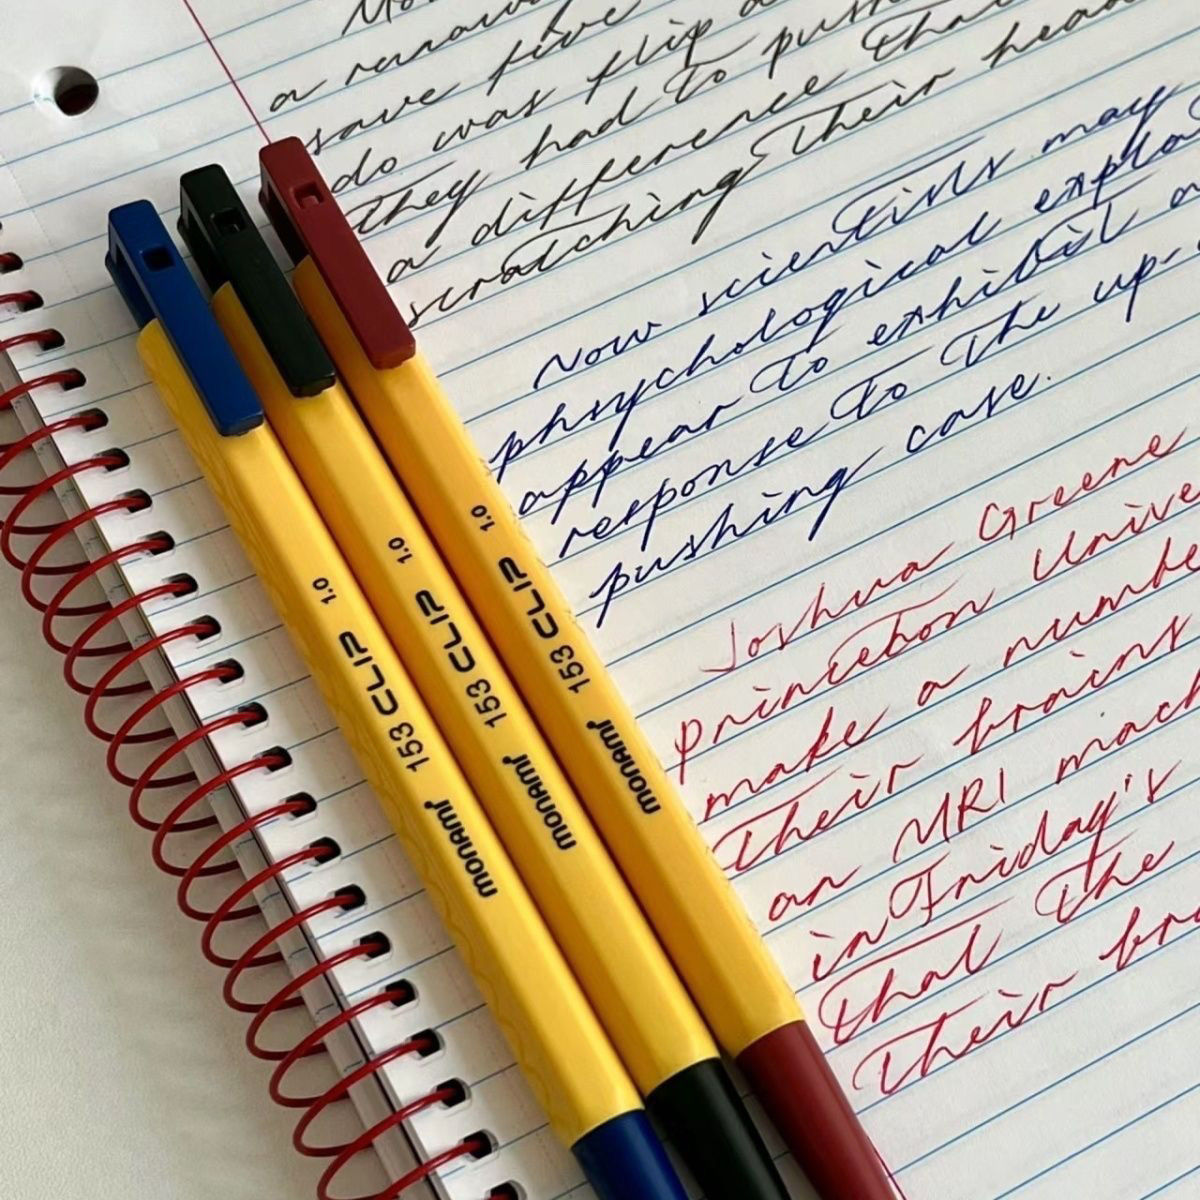 a runaw
save five
do was flip a
they had to push
a difference that
scratching their head
Now scientists may
phsychological expla
appear to exhibit a
response to the up-
pushing case.
Joshua Greene
princeton Unive
make a numbe
their brains
an MRI mach
in Friday's
that the
their bra
monami 153 CLIP 1.0
monami 153 CLIP 1.0
monami 153 CLIP 1.0